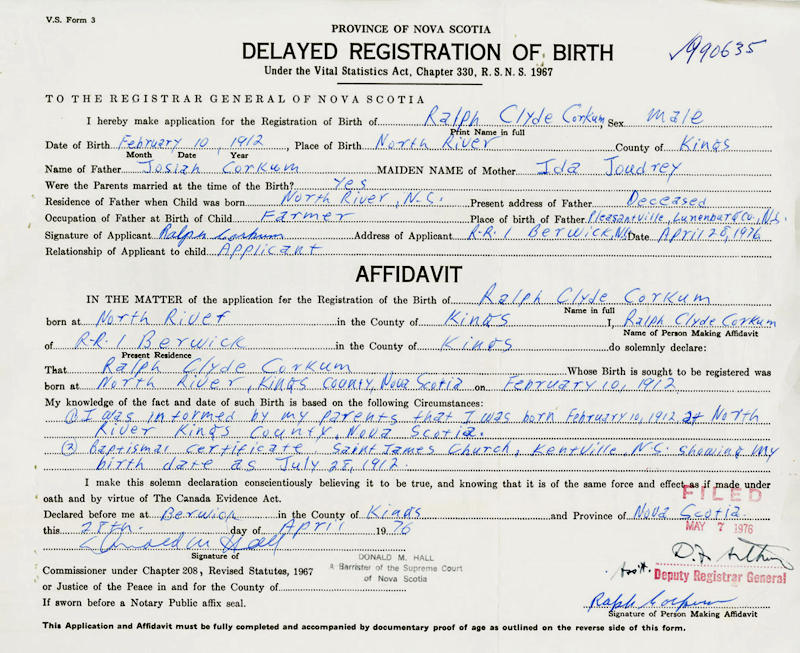 V.S. Form 3
PROVINCE OF NOVA SCOTIA
DELAYED REGISTRATION OF BIRTH
990635
Under the Vital Statistics Act, Chapter 330, R.S.N.S. 1967
TO THE REGISTRAR GENERAL OF NOVA SCOTIA
I hereby make application for the Registration of Birth of Ralph Clyde Corkum, Sex Male
Print Name in full
Date of Birth February 10, 1912, Place of Birth North River County of Kings
Month Date Year
Name of Father Josiah Corkum MAIDEN NAME of Mother Ida Joudrey
Were the Parents married at the time of the Birth? Yes
Residence of Father when Child was born North River, N.S. Present address of Father Deceased
Occupation of Father at Birth of Child Farmer Place of birth of Father Pleasantville, Lunenburg Co., N.S.
Signature of Applicant Ralph Corkum Address of Applicant R.R. 1 Berwick, N.S. Date April 28, 1976
Relationship of Applicant to child Applicant
AFFIDAVIT
IN THE MATTER of the application for the Registration of the Birth of Ralph Clyde Corkum
Name in full
born at North River in the County of Kings I, Ralph Clyde Corkum
Name of Person Making Affidavit
of R.R. 1 Berwick in the County of Kings do solemnly declare:
Present Residence
That Ralph Clyde Corkum Whose Birth is sought to be registered was
born at North River, Kings County, Nova Scotia on February 10, 1912
My knowledge of the fact and date of such Birth is based on the following Circumstances:
(1) I was informed by my parents that I was born February 10, 1912 at North
River Kings County, Nova Scotia.
(2) Baptismal certificate Saint James Church, Kentville, N.S. showing my
birth date as July 28, 1912.
I make this solemn declaration conscientiously believing it to be true, and knowing that it is of the same force and effect as if made under
oath and by virtue of The Canada Evidence Act.
FILED
Declared before me at Berwick in the County of Kings and Province of Nova Scotia.
MAY 7 1976
this 28th. day of April 1976
Donald M Hall
Signature of
DONALD M. HALL
A Barrister of the Supreme Court
of Nova Scotia
Commissioner under Chapter 208, Revised Statutes, 1967
Ass't. Deputy Registrar General
or Justice of the Peace in and for the County of
If sworn before a Notary Public affix seal.
Ralph Corkum
Signature of Person Making Affidavit
This Application and Affidavit must be fully completed and accompanied by documentary proof of age as outlined on the reverse side of this form.